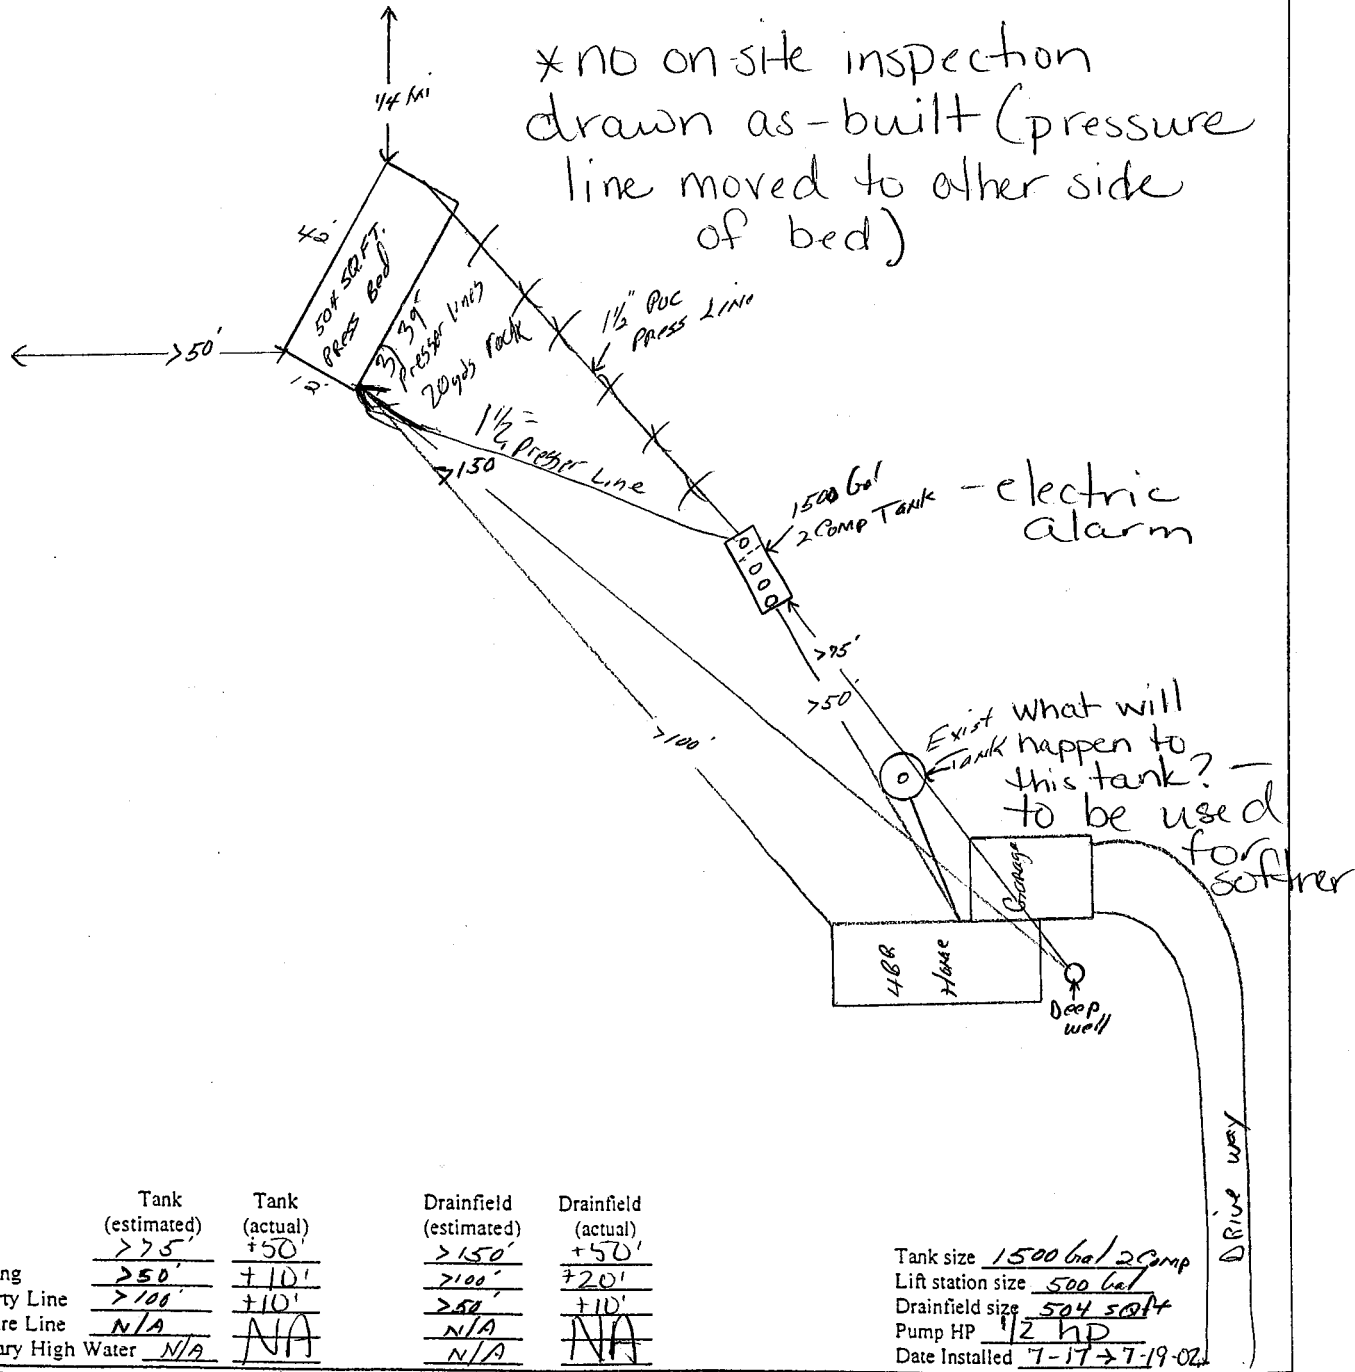 *no on-site inspection
drawn as-built (pressure
line moved to other side
of bed)
1/4 Mi
42'
504 SQ.FT.
PRESS Bed
3) 39'
Presser lines
20yds rock
>50'
12'
1½" PVC
PRESS LINE
1½"
Presser Line
>150
1500 Gal
2 Comp Tank
- electric
alarm
>75'
>50'
>100'
Exist
Tank
what will
happen to
this tank? -
to be used
for
softner
Garage
4BR
House
Deep
well
DRive way
Tank Tank Drainfield Drainfield
(estimated) (actual) (estimated) (actual)
>75' +50' >150' +50'
ng >50' +10' >100' +20'
ty Line >100' +10' >50' +10'
re Line N/A NA N/A NA
ary High Water N/A N/A
Tank size 1500 Gal 2 Comp
Lift station size 500 Gal
Drainfield size 504 sqft
Pump HP 1/2 hp
Date Installed 7-17 → 7-19-02